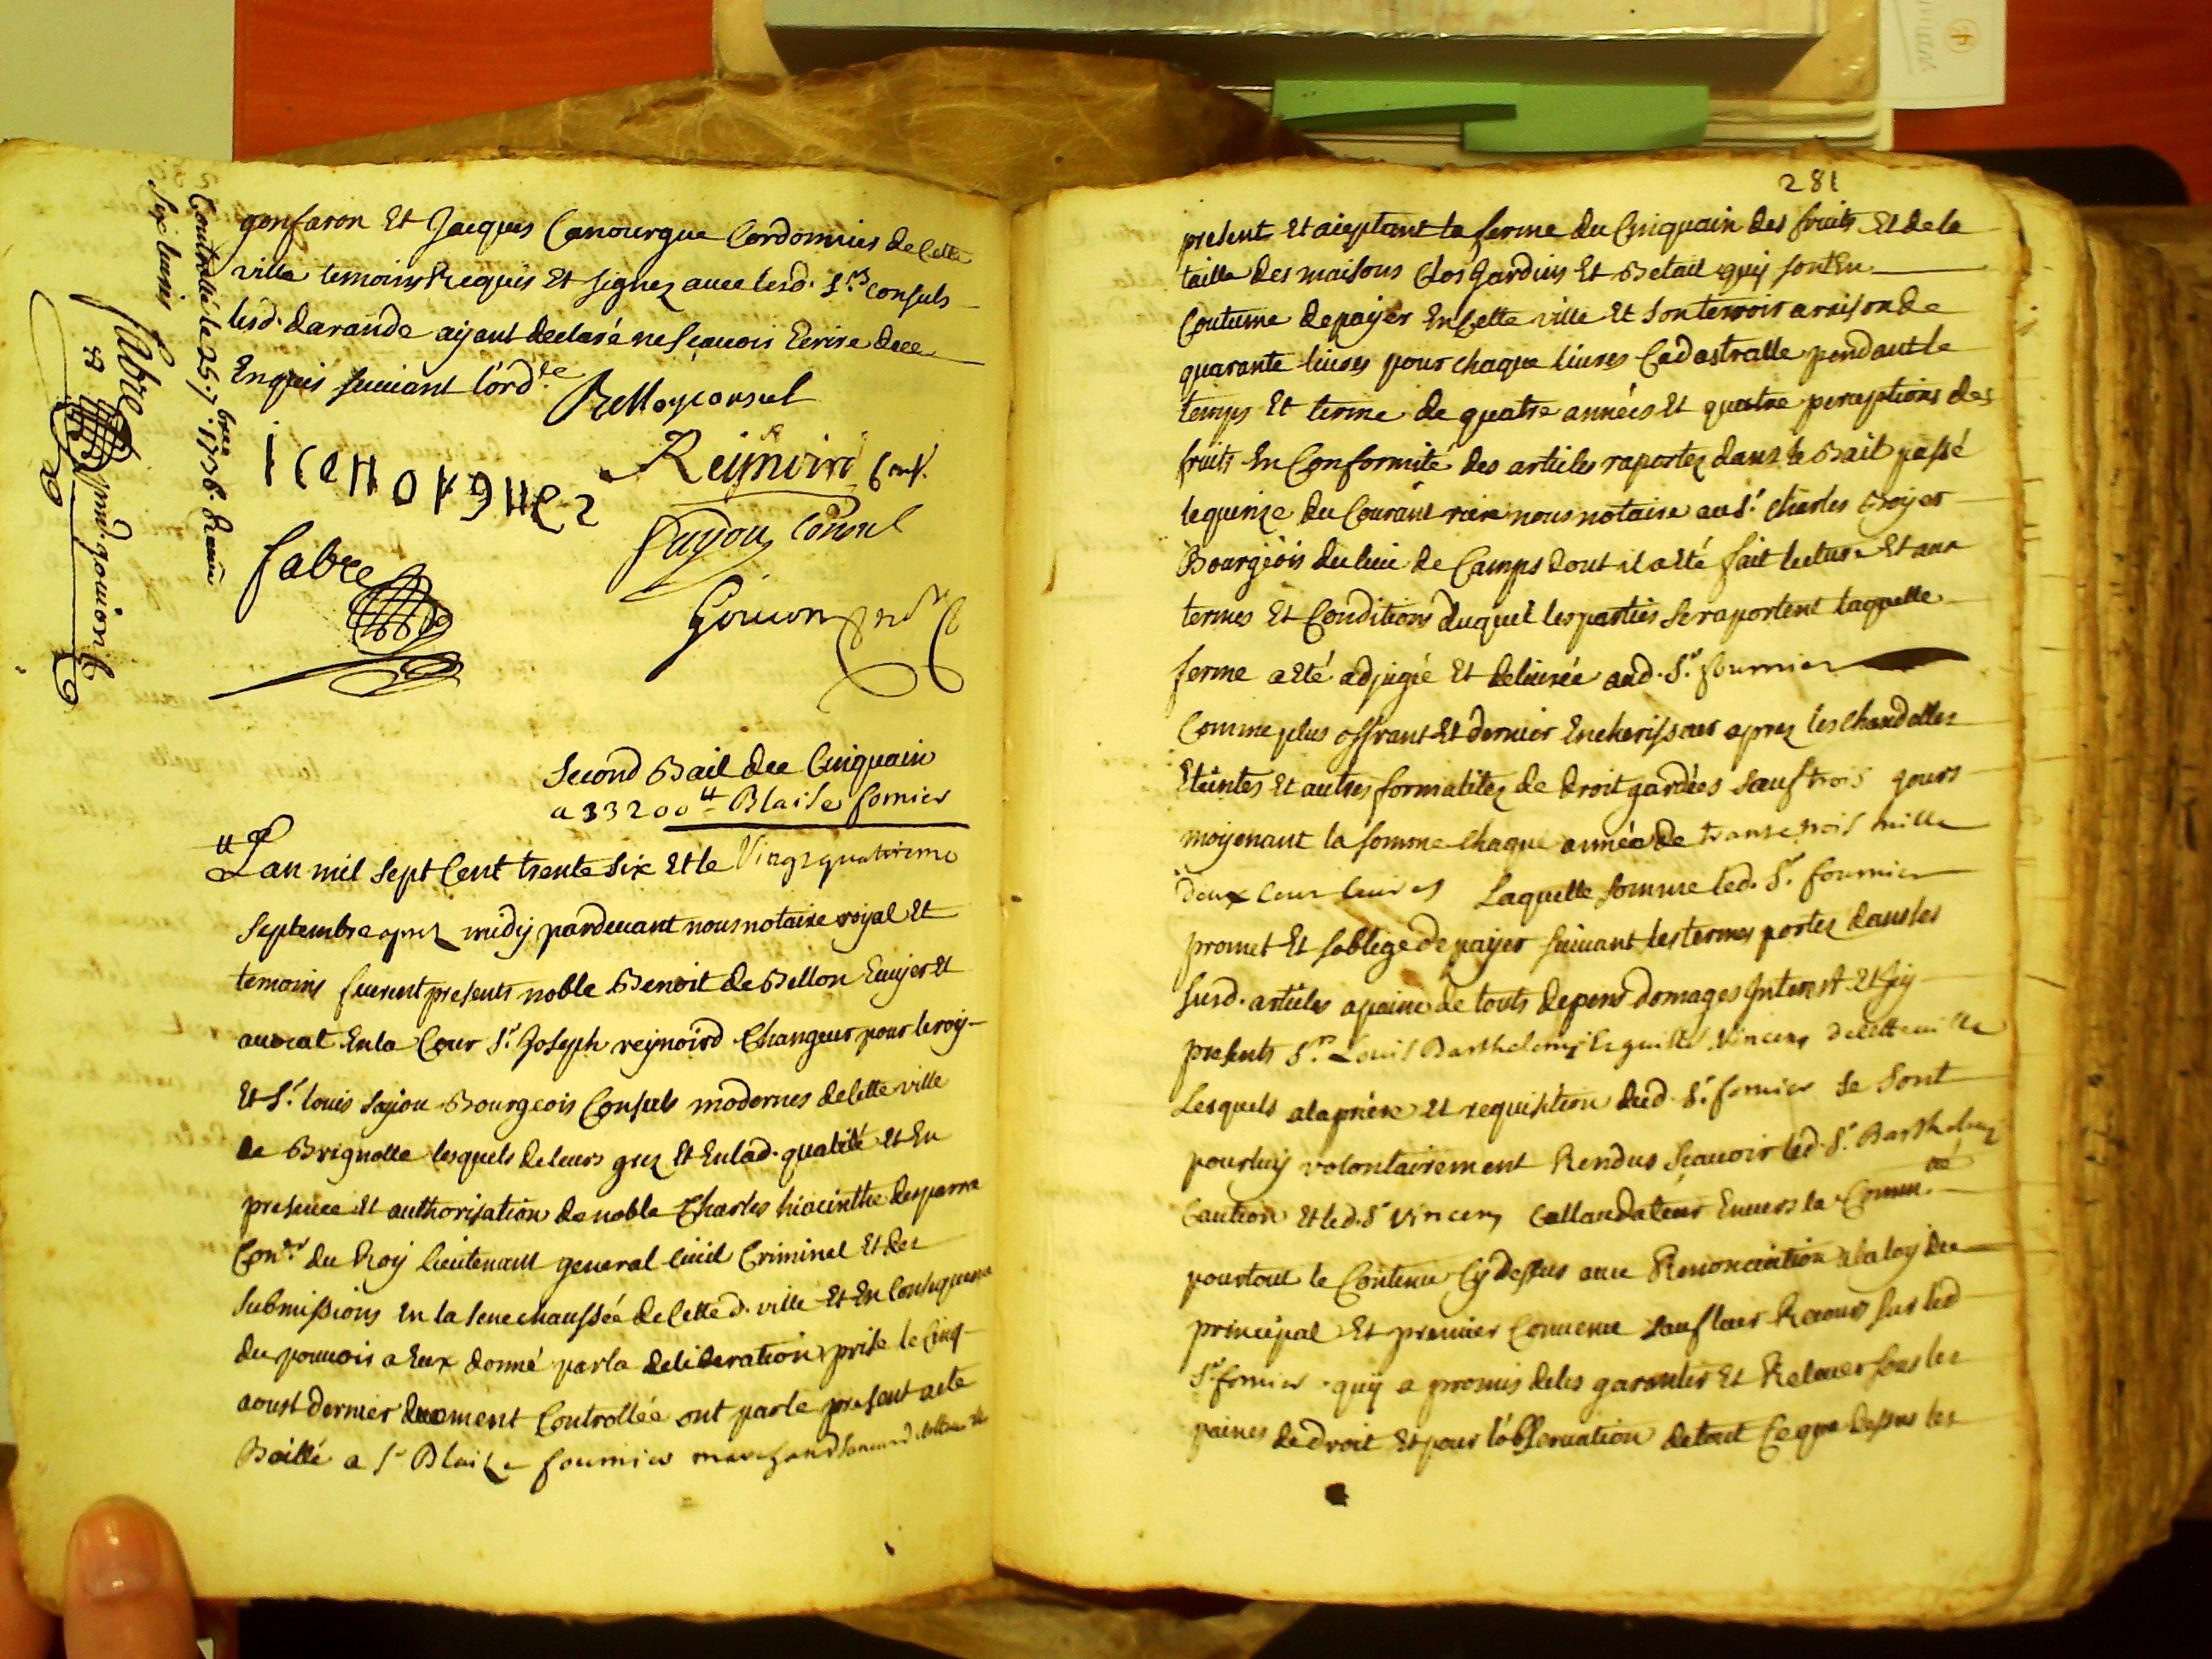 gonfaron Et Jacques Canourgue Cordonnier de Cette
ville temoins Requis Et signez avec lesd. Srs consuls
lesd. darande aijant declaré ne sçavoir Ecrire de ce
Enquis suivant l'ordce
Bellon consul
icanorgues
Reijnoird Cons.
fabre
Sayou Consul
Gouion nore
Controllé le 25 7bre 1736. Reçeu
Six livres
fabre
Second Bail du Cinquain
a 33200 ₶ Blaise fornier
Lan mil sept Cent trente six Et le Vingt quatrieme
Septembre aprez midij pardevant nous notaire roijal Et
temoins furent presents noble Benoit de Bellon Ecuijer Et
avocat En la Cour Sr. Joseph reijnoird Changeur pour le roij
Et Sr. louis Sayou Bourgeois Consuls modernes de Cette ville
de Brignolle lesquels de leurs grez Et En lad. qualité Et En
presence Et authorisation de noble Charles hiacinthe desparra
Conser du Roij lieutenant general Civil Criminel Et des
Submissions En la Senechaussée de Cette d. ville Et En Consequence
du pouvoir a Eux donné par la deliberation prise le Cinq
aoust dernier duement Controllée ont par le present acte
Baillé a Sr Blaise fournier marchand
281
present Et aceptant la ferme du Cinquain des fruits Et de la
taille des maisons Clos Jardins Et Betail quij sont En
Coutume de paijer En Cette ville Et Son terroir a raison de
quarante livres pour chaque livres Cadastralle pendant le
temps Et terme de quatre années Et quatre perceptions des
fruits En Conformité des articles raportez dans le Bail passé
le quinze du Courant riere nous notaire au Sr. Charles Boijer
Bourgeois du lieu de Camps dont il a Eté fait lecture Et aux
termes Et Conditions duquel les parties Se raportent laquelle
ferme a Eté adjugée Et delivrée aud. Sr. fournier
Comme plus offrant Et dernier Encherisseur aprez les Chandelles
Eteintes Et autres formalitez de droit gardées sauf trois jours
moijenant la somme chaque année de trante trois mille
deux Cens livres Laquelle somme led. Sr. fournier
promet Et s'oblige de paijer suivant les termes portez dans les
susd. articles a peine de touts depens domages Interest Et Ji
presents Srs Louis Barthelemij Vincens de cette ville
Lesquels a la priere Et requisition dud. Sr. fornier se Sont
pour luij volontairement Rendus sçavoir led. Sr. Barthelemij
Caution Et led. Sr Vincens Collaudateur Envers la Commté
pour tout le Contenu Cij dessus avec Renonciation a la loij du
principal Et premier Convenu sauf leur Recours sur led
Sr fornier quij a promis de les garentir Et Relever sous les
paines de droit Et pour l'observation de tout Ce que dessus les